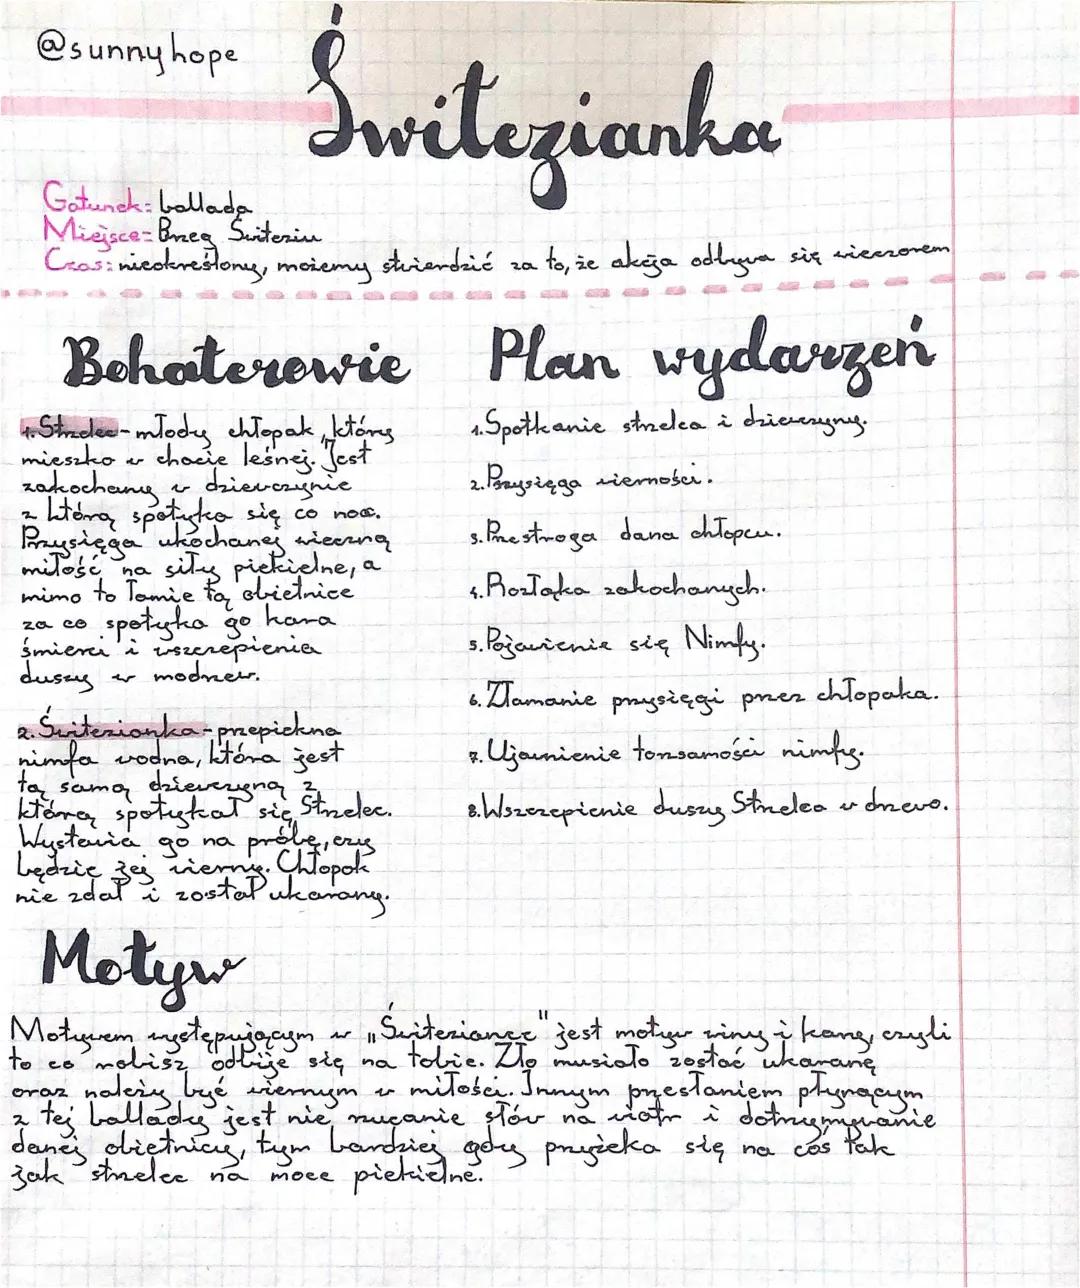 @sunnyhope
Świtezianka
Gatunek: ballada
Miejsce: Brzeg Świtezin
Czas: nieokreślony, możemy stwierdzić za to, że akcja odbywa się wieczorem
Bohaterowie
1. Strzelec - młody chłopak, który
mieszka w chacie leśnej. Jest
zakochany w dziewczynie
z którą spotyka się co noc.
Przysięga ukochanej wieczną
miłość na siły piekielne, a
mimo to łamie tą obietnice
za co spotyka go kara
śmierci i wszczepienia
duszy w modrzew.
2. Świtezianka - przepiękna
nimfa wodna, która jest
tą samą dziewczyną z
którą spotykał się Strzelec.
Wystawia go na próbę, czy
będzie jej wierny. Chłopak
nie zdał i został ukarany.
Plan wydarzeń
1. Spotkanie strzelca i dziewczyny.
2. Przysięga wierności.
3. Przestroga dana chłopcu.
4. Rozłąka zakochanych.
5. Pojawienie się Nimfy.
6. Złamanie przysięgi przez chłopaka.
7. Ujawnienie tożsamości nimfy.
8. Wszczepienie duszy Strzelca w drzewo.
Motyw
Motywem występującym w „Świteziance" jest motyw winy i kary, czyli
to co robisz odbije się na tobie. Zło musiało zostać ukarane
oraz należy być wiernym w miłości. Innym przesłaniem płynącym
z tej ballady jest nie rzucanie słów na wiatr i dotrzymywanie
danej obietnicy, tym bardziej gdy przyżeka się na coś tak
jak strzelec na moce piekielne.